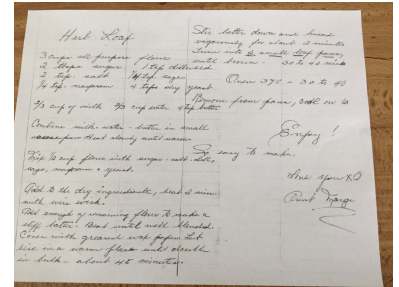 Herb Loaf
3 cups all purpose flour
2 tbsps sugar 1 tsp dillseed
2 tsp. salt 1/4 tsp sage
1/4 tsp. marjoram 4 tsps dry yeast
2/3 cup of milk 2/3 cup water 4 tsp butter
Combine milk-water-butter in small
saucepan Heat slowly until warm
Mix 1/2 cup flour with sugar-salt-dill
sage, marjoram & yeast.
Add to the dry ingredients, beat 2 min
with wire wisk.
Add enough of remaining flour to make a
stiff batter. Beat until well blended.
Cover with greased wax paper Let
rise in a warm place until double
in bulk - about 45 minutes.
Stir batter down and beat
vigorously for about 2 minutes
Turn into 2 small loaf pans,
until brown. 30 to 40 min
Oven 375 - 30 to 40
Remove from pans, cool on
Enjoy!
So easy to make.
Love you XO
Aunt Marge